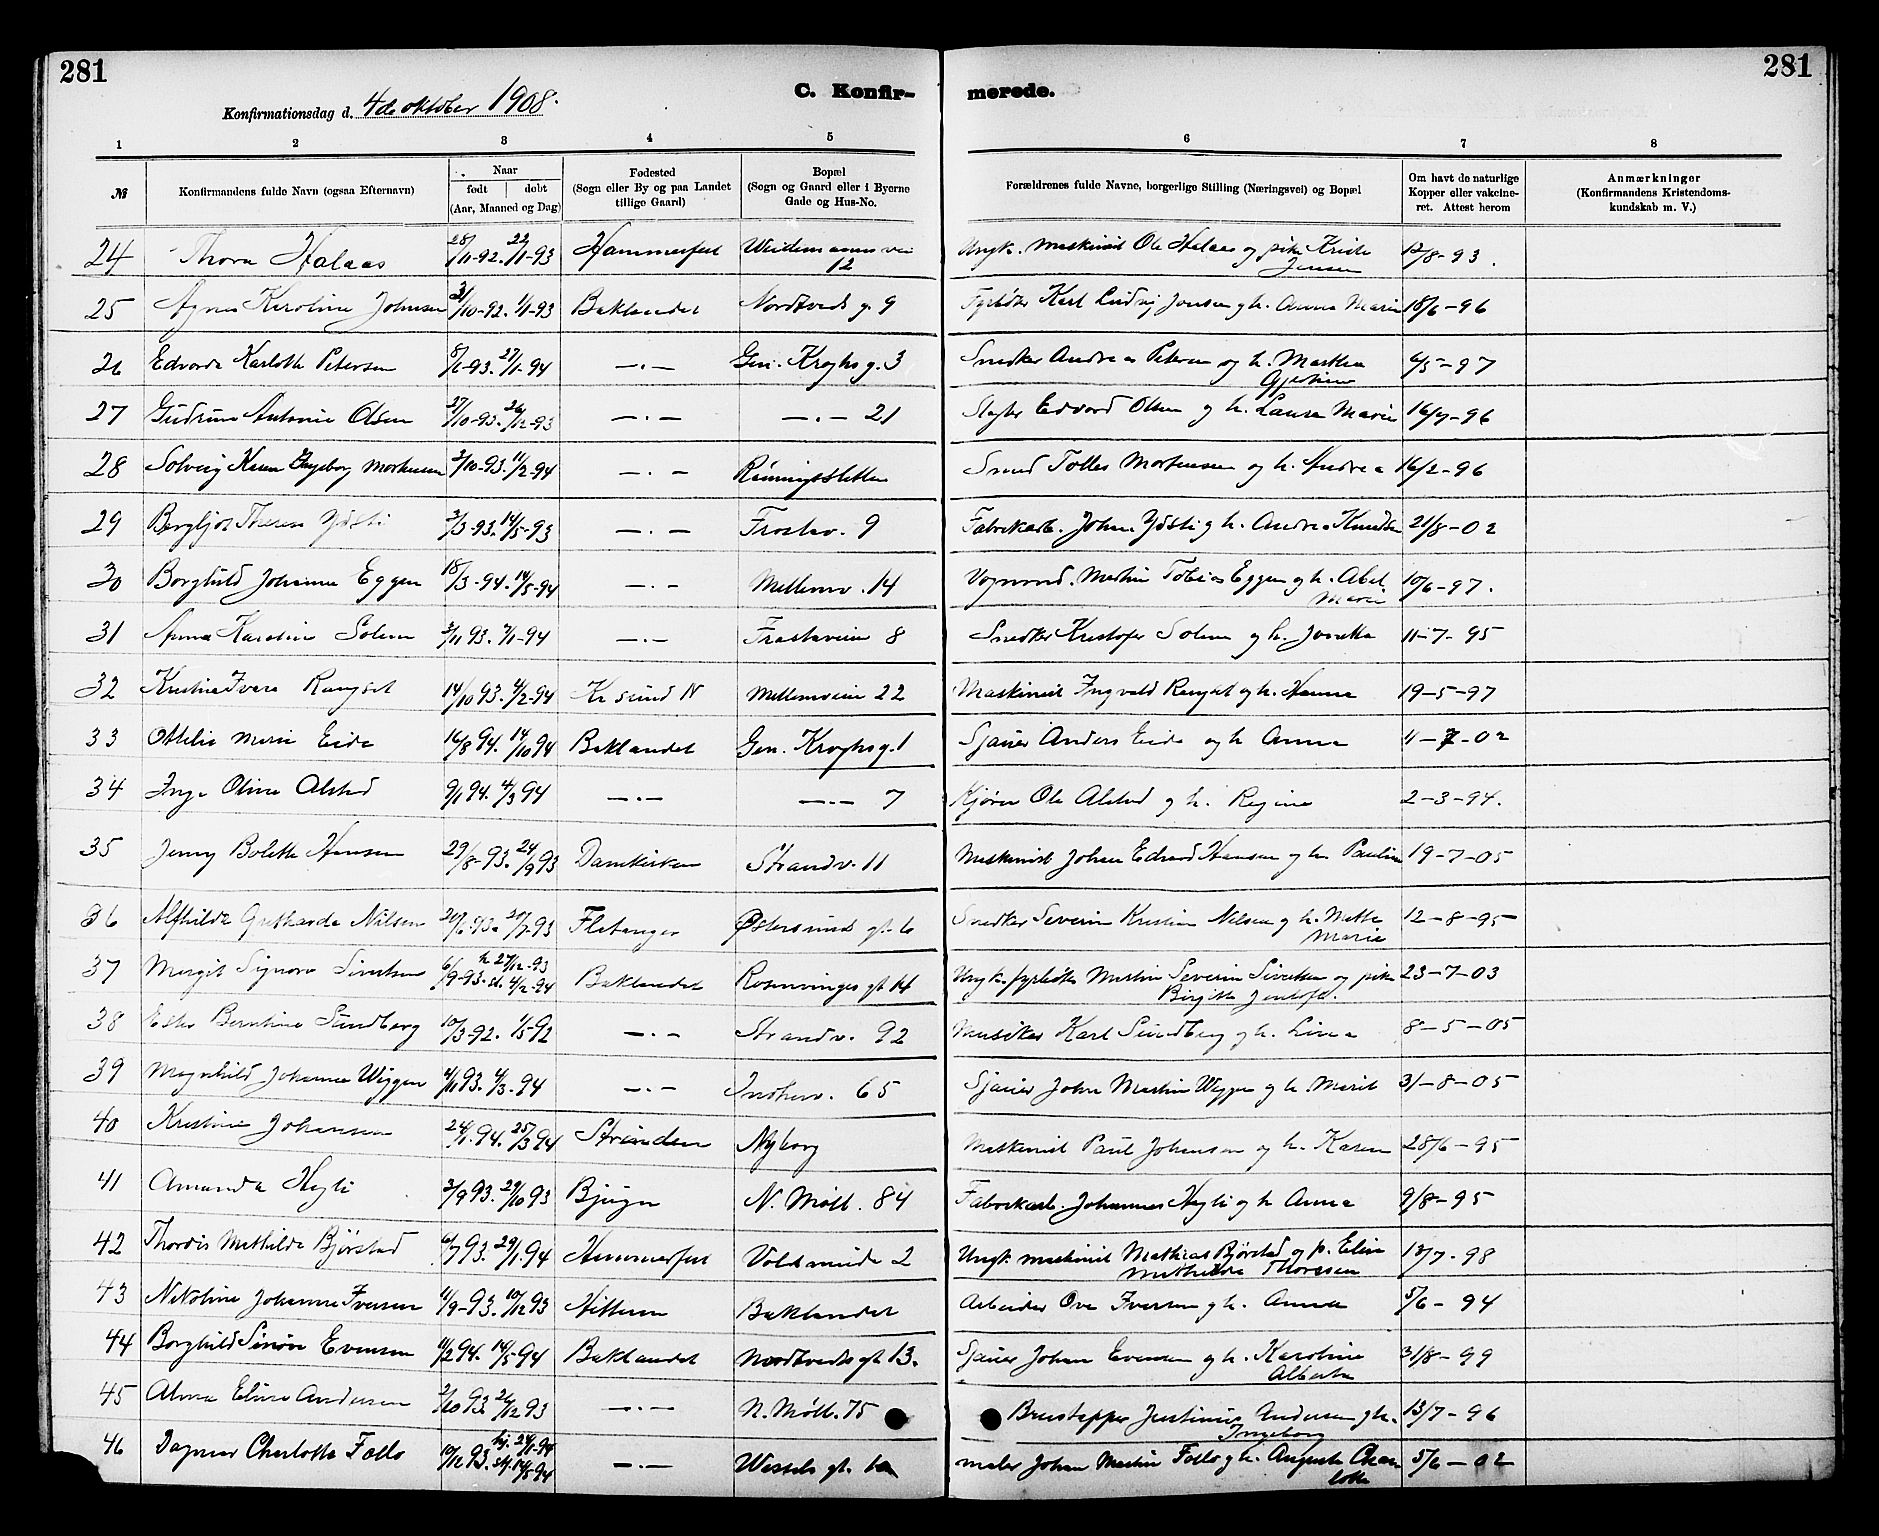 281
281
Konfirmationsdag d. 4de oktober 1908.
C. Konfir- merede.
1 2 3 4 5 6 7 8
№ Konfirmandens fulde Navn (ogsaa Efternavn) Naar født døbt (Aar, Maaned og Dag) Fødested (Sogn eller By og paa Landet tillige Gaard) Bopæl (Sogn og Gaard eller i Byerne Gade og Hus-No. Forældrenes fulde Navne, borgerlige Stilling (Næringsvei) og Bopæl Om havt de naturlige Kopper eller vakcineret. Attest herom Anmærkninger (Konfirmandens Kristendomskundskab m. V.)
24 Thora Halaas 28/11-92. 22/1-93 Hammerfest Weidemanns vei 12 Ungk. maskinist Ole Halaas og pike Jensen 12/8-93.
25 Agnes Karoline Johnsen 31/10-92. 1/1-93 Baklandet Nordtveds g. 9 Fyrbøter Karl Ludvig Jonsen og h. Anna Marie 18/6-96
26 Edvarda Karlotte Petersen 8/1-93. 27/1-94 —.— Gen. Kroghs g. 3 Snedker Andreas Petersen og h. Marthea 6/5-97
27 Gudrun Antonie Olsen 27/10-93. 26/12-93 —.— —.— 21 Edvard Olsen og h. Laura Marie 16/7-96
28 Solveig Ingeborg Mortensen 2/10-93. 11/2-94 —.— Rønningsletten Smed Tolles Mortensen og h. Andrea 16/2-96
29 Bergljot Therese Ydsti 2/3-93. 14/5-93 —.— Frostav. 9 Fabrikarb. Johan Ydsti og h. Andrea Knudsen 21/8-02
30 Borghild Johanne Eggen 18/3-94. 14/5-94 —.— Mellemv. 14 Vognmand. Martin Tobias Eggen og h. Abel Marie 10/6-97.
31 Anna Karoline Solem 3/11 93. 7/1-94 —.— Frostaveien 8 Snedker Kristofer Solem og h. 11-7-95
32 Kristine Ivara Rangset 14/10 93. 4/2-94 Kr sund N Mellemveien 22 Maskinist Ingvald Rangset og h. Hanna 19-5-97
33 Ottelie Marie Eide 16/8 94. 14/10 94 Baklandet Gen. Kroghs g. 1 Sjauer Anders Eide og h Anna 11-7-02
34 Inga Oline Alstad 9/1 94. 4/3 94 —.— —.— 7 Kjører Ole Alstad og h. Regine 2-3-94.
35 Jenny Bolette Hansen 29/8-93. 24/9 93 Domkirken Strandv. 11 Maskinist Johan Edvard Hansen og h. Pauline 19-7-05
36 Alfhilde Gretharda Nilsen 20/6-93. 20/7-93 Flatanger Østersunds gt. 6 Snedker Severin Kristian Nilsen og h. Mette Marie 12-8-95
37 Margit Signora Sivertsen 6/9-93. h 27/12-93 st. 4/2-94 Baklandet Rosenvinges gt 14 Ungk. fyrbøter Martin Severin Sivertsen og pike Birgitte 23-7-03
38 Ester Berntine Sundberg 10/3-92. 1/5 92 —.— Strandv. 92 Musiker Karl Sundberg og h. Linea 8-5-05
39 Magnhild Johanna Wiggen 4/11 93. 4/3-94 —.— Indherv. 65 Sjauer John Martin Wiggen og h. Marit 31-8-05
40 Kristine Johansen 24/1-94. 25/3 94 Strinden Nyborg Maskinist Paul Johansen og h. Karen 28/6-95
41 Amanda Hegli 2/9 93. 29/10 93 Bjugn N. Møll. 84 Fabrikarb. Johannes Hegli og h Anna 9/8-95
42 Thordis Mathilde Bjørstad 6/7 93. 29/1-94 Hammerfest Voldsminde 2 Ungk. maskinist Mathias Bjørstad og p. Elen Mathilde Thoresen 13/7-98
43 Nikoline Johanne Iversen 11/9-93. 10/12 93 Hitteren Baklandet Arbeider Ove Iversen og h. Anna 5/6-94
44 Borghild Simine Evensen 11/2 94. 14/5-94 Baklandet Nordtveds gt 13. Sjauer Johan Evensen og h. Karoline Alberta 31/8-99
45 Alma Elisa Andersen 2/10 93. 26/12 93 —.— N. Møll. 75 Justinus Andersen og h. Ingeborg 13/7-96
46 Dagmar Charlotte Follo 10/12 93. hj. 24/1-94 st. 14/5-94 —.— Wessels gt. maler Johan Martin Follo og h. Augusta Charlotte 5/6-02